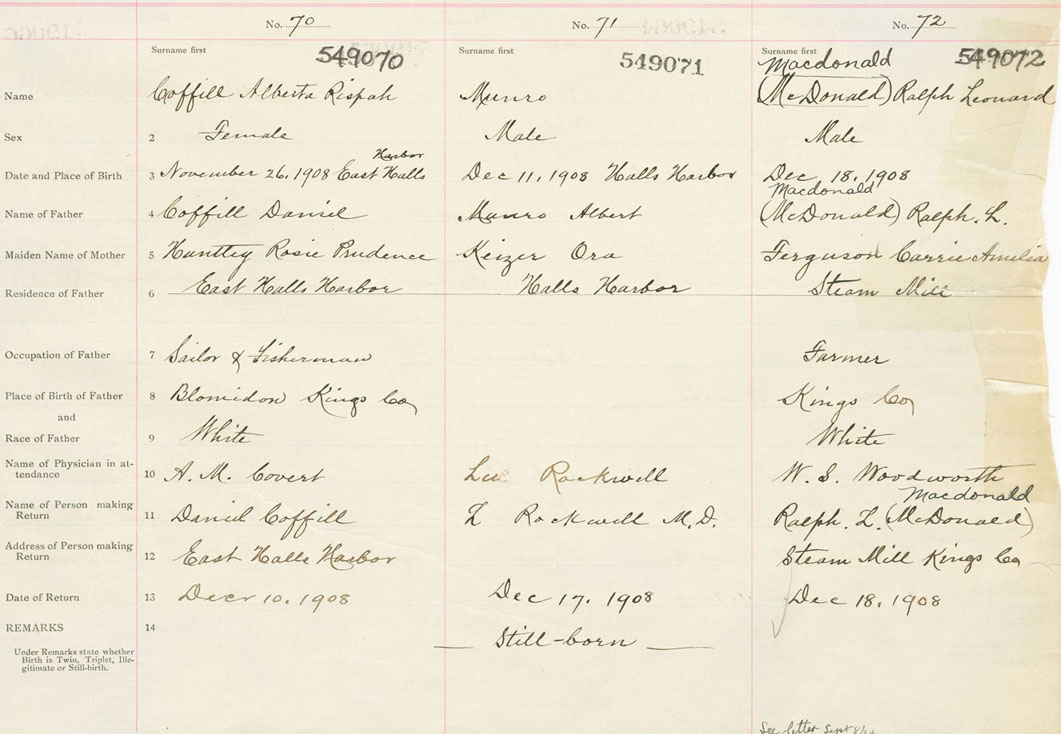 No. 70 No. 71 No. 72
Surname first 549070 Surname first 549071 Surname first 549072
Macdonald
Name Coffill Alberta Rispah Munro (McDonald) Ralph Leonard
Sex 2 Female Male Male
Harbor
Date and Place of Birth 3 November 26, 1908 East Halls Dec 11, 1908 Halls Harbor Dec, 18, 1908
Macdonald
Name of Father 4 Coffill Daniel Munro Albert (McDonald) Ralph. L.
Maiden Name of Mother 5 Huntley Rosie Prudence Keizer Ora Ferguson Carrie Amelia
Residence of Father 6 East Halls Harbor Halls Harbor Steam Mill
Occupation of Father 7 Sailor & Fisherman Farmer
Place of Birth of Father 8 Blomidon Kings Co Kings Co
and
Race of Father 9 White White
Name of Physician in at-
tendance 10 A. M. Covert Rockwell W. S. Woodworth
Macdonald
Name of Person making
Return 11 Daniel Coffill L Rockwell M.D. Ralph. L. (McDonald)
Address of Person making
Return 12 East Halls Harbor Steam Mill Kings Co
Date of Return 13 Decr 10, 1908 Dec 17, 1908 Dec 18, 1908
REMARKS 14 — Still-born —
Under Remarks state whether
Birth is Twin, Triplet, Ille-
gitimate or Still-birth.
See letter Sept